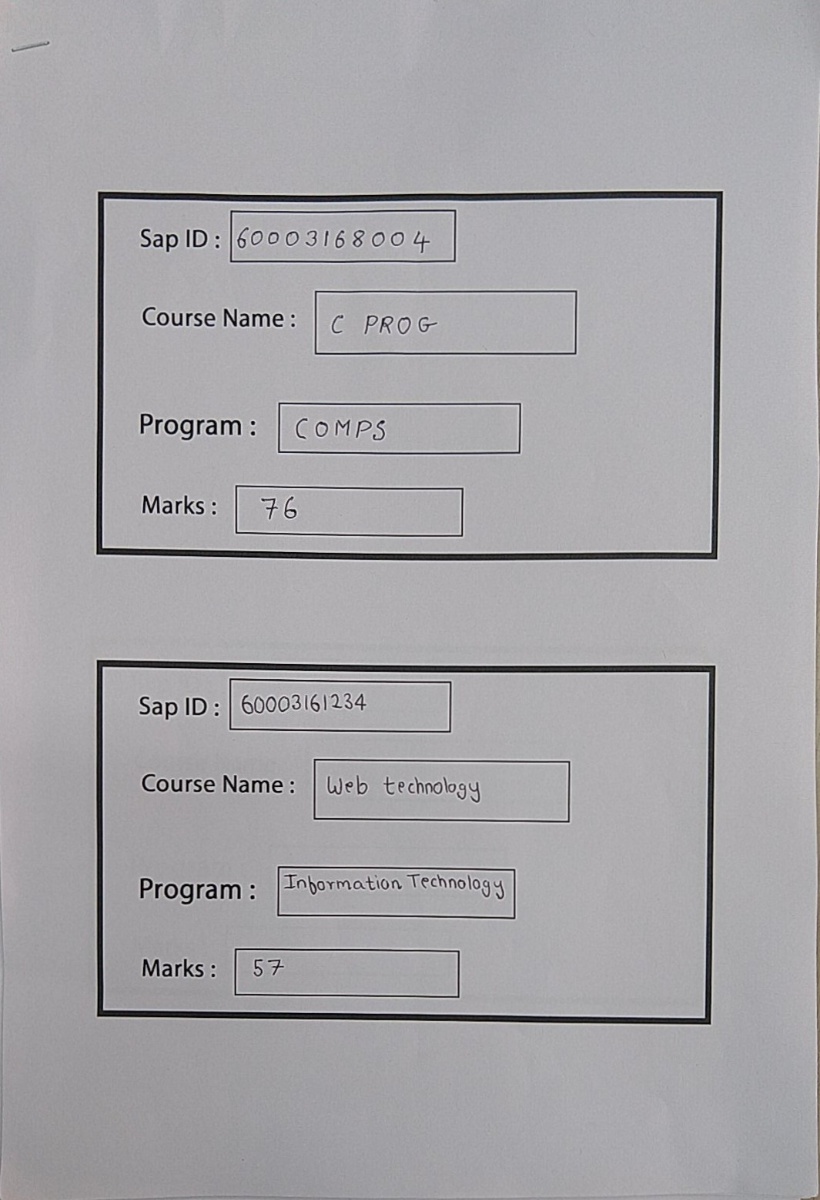 Sap ID : 60003168004
Course Name : C PROG
Program : COMPS
Marks : 76
Sap ID : 60003161234
Course Name : Web technology
Program : Information Technology
Marks : 57